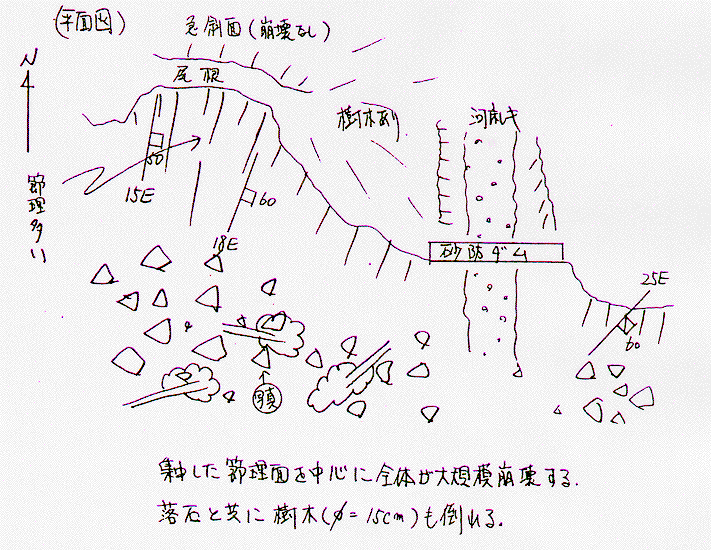 (平面図)
急斜面(崩壊なし)
N
尾根
樹木あり
河床
節理多い
50
15E
60
18E
砂防ダム
25E
60
写真
集中した節理面を中心に全体が大規模崩壊する.
落石と共に樹木(φ=15cm)も倒れる.